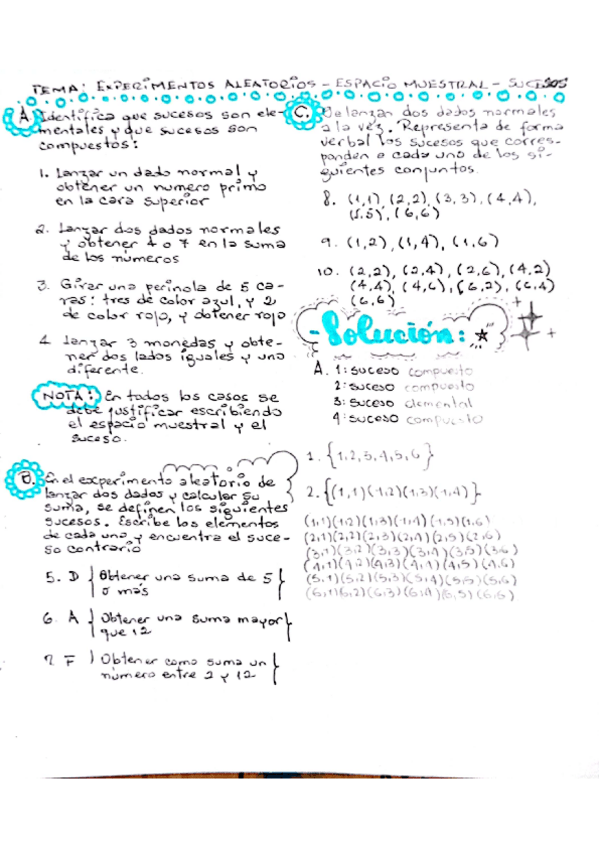 TEMA: EXPERIMENTOS ALEATORIOS - ESPACIO MUESTRAL - SUCESOS
A. Identifica que sucesos son ele-
mentales y que sucesos son
compuestos:
1. Lanzar un dado normal y
obtener un numero primo
en la cara superior
2. Lanzar dos dados normales
y obtener 4 o 7 en la suma
de los números
3. Girar una perinola de 5 ca-
ras: tres de color azul, y 2
de color rojo, y obtener rojo
4. Lanzar 3 monedas y obte-
ner dos lados iguales y uno
diferente.
NOTA: En todos los casos se
debe justificar escribiendo
el espacio muestral y el
suceso.
B. En el experimento aleatorio de
lanzar dos dados y calcular su
suma, se definen los siguientes
sucesos. Escribe los elementos
de cada uno y encuentra el suce-
so contrario
5. D { Obtener una suma de 5
o más }
6. A { Obtener una suma mayor
que 12 }
7. F } Obtener como suma un
número entre 2 y 12 {
C. Se lanzan dos dados normales
a la vez. Representa de forma
verbal los sucesos que corres-
ponden a cada uno de los si-
guientes conjuntos.
8. (1,1), (2,2), (3,3), (4,4),
(5,5), (6,6)
9. (1,2), (1,4), (1,6)
10. (2,2), (2,4), (2,6), (4,2)
(4,4), (4,6), (6,2), (6,4)
(6,6)
-Solución:
A. 1: suceso compuesto
2: suceso compuesto
3: suceso elemental
4: suceso compuesto
1. {1,2,3,4,5,6}
2. {(1,1)(1,2)(1,3)(1,4)}
(1,1)(1,2)(1,3)(1,4)(1,5)(1,6)
(2,1)(2,2)(2,3)(2,4)(2,5)(2,6)
(3,1)(3,2)(3,3)(3,4)(3,5)(3,6)
(4,1)(4,2)(4,3)(4,4)(4,5)(4,6)
(5,1)(5,2)(5,3)(5,4)(5,5)(5,6)
(6,1)(6,2)(6,3)(6,4)(6,5)(6,6)